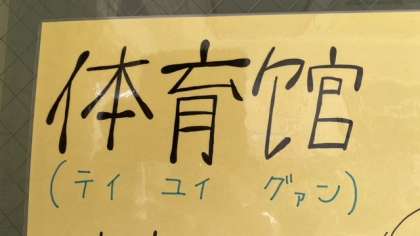 体育馆
(ティ ユイ グァン)